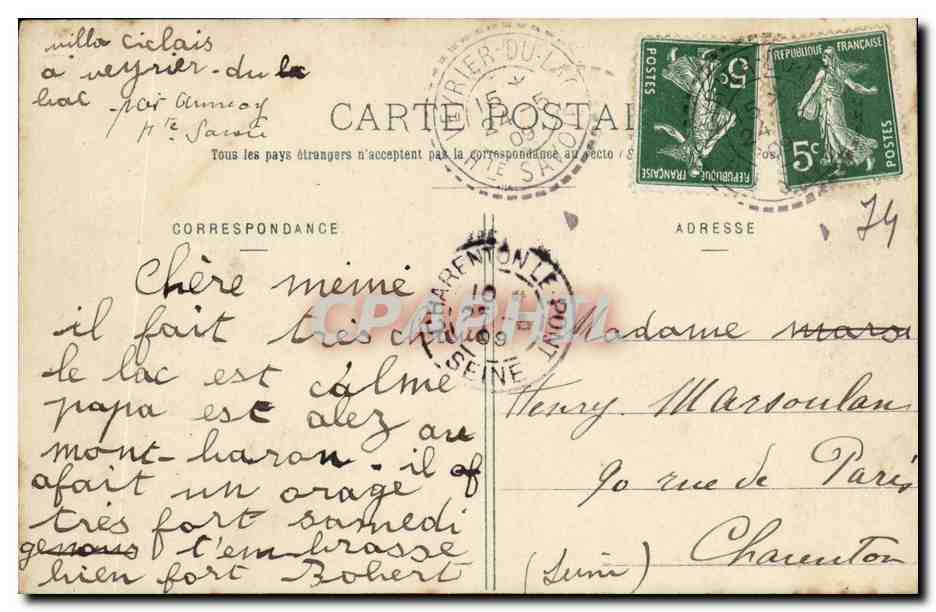 villa ciclais
a veyrier-du-la
lac par annecy
Hte Savoie
CARTE POSTAL
Tous les pays étrangers n'acceptent pas la correspondance au recto (S
VEYRIER-DU-LAC
15
5
09
HTE SAVOIE
POSTES
5c
REPUBLIQUE FRANÇAISE
REPUBLIQUE FRANÇAISE
5c
POSTES
74
CORRESPONDANCE
ADRESSE
CHARENTON LE PONT
10
25
09
SEINE
CPAPHIL
Chère mémé
il fait très chaud
le lac est calme
papa est alez au
mont-baron. il
afait un orage
très fort samedi
ge t'embrasse
bien fort Robert
Madame
Henry Marsoulan
90 rue de Paris
Charenton
(Seine)